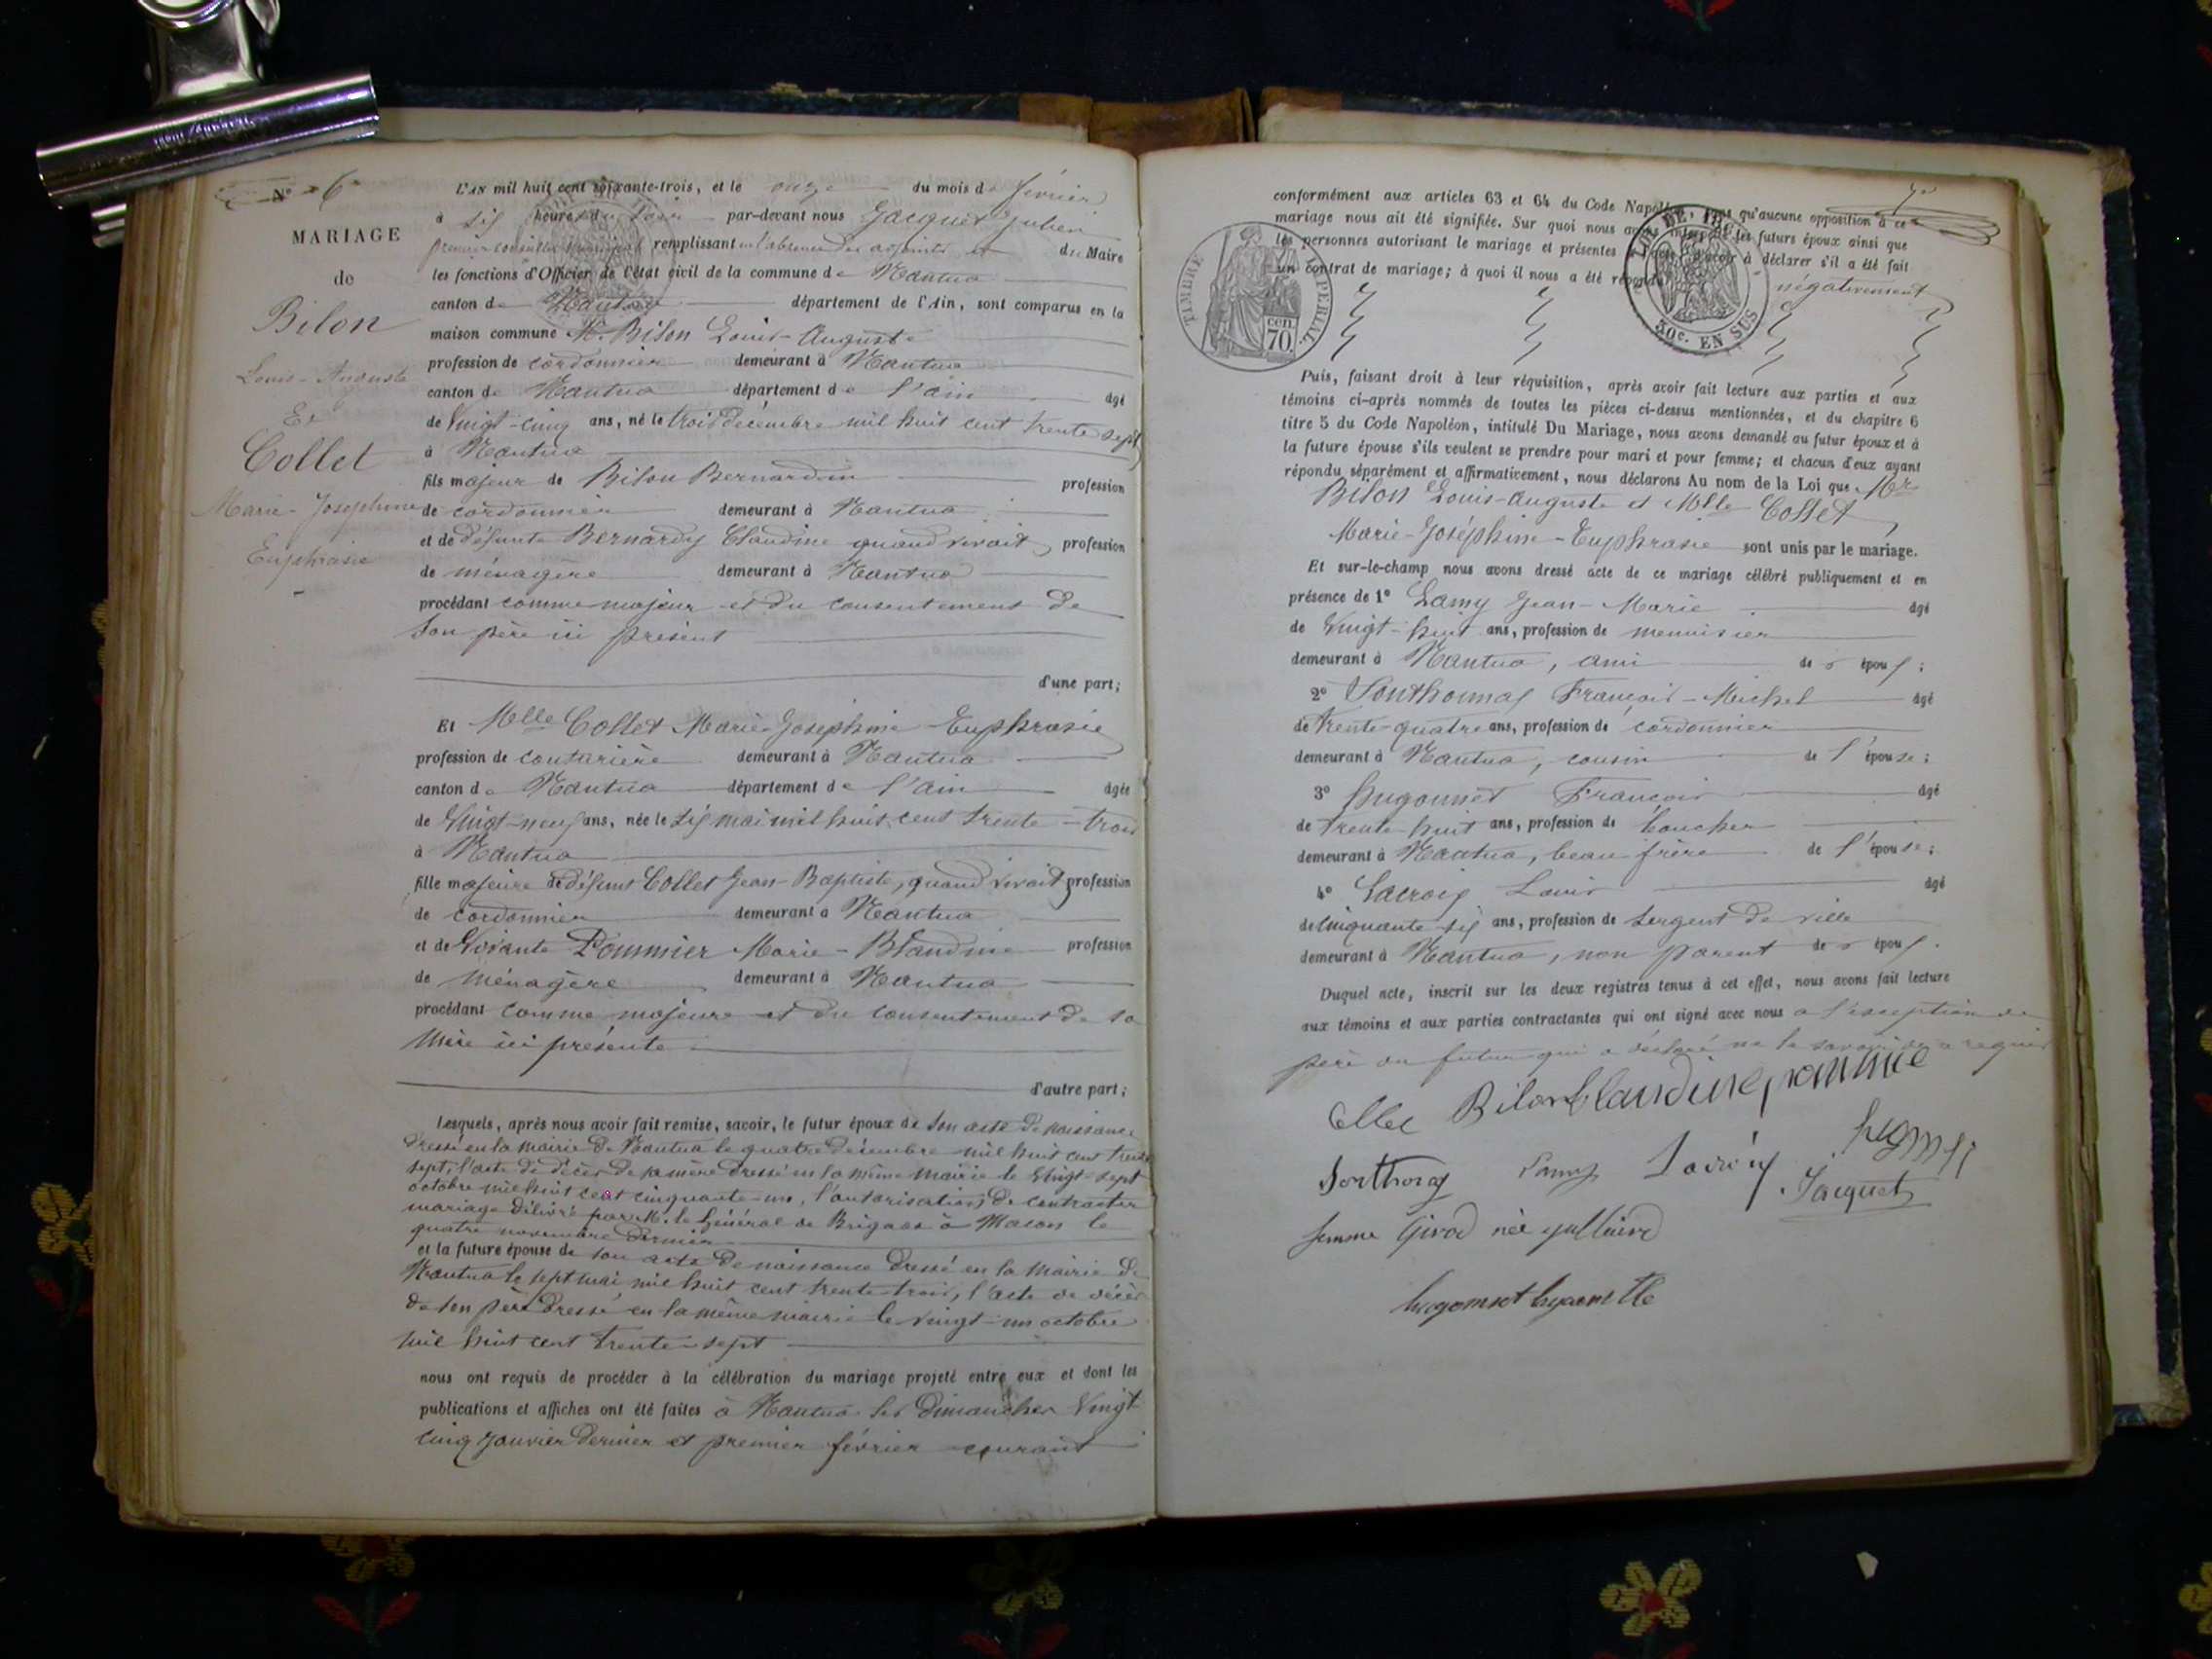 N° 6
MARIAGE
de
Bilon
Louis-Auguste
Et
Collet
Marie-Josephine
Euphrasie
L'AN mil huit cent soixante-trois, et le onze du mois de février
à six heures du soir par-devant nous Jacquet Julien
premier conseiller municipal remplissant en l'absence des adjoints et du Maire
les fonctions d'Officier de l'état civil de la commune de Nantua
canton de Nantua département de l'Ain, sont comparus en la
maison commune Mr. Bilon Louis-Auguste
profession de cordonnier demeurant à Nantua
canton de Nantua département de l'ain âgé
de Vingt-cinq ans, né le trois décembre mil huit cent trente sept
à Nantua
fils majeur de Bilon Bernardin profession
de cordonnier demeurant à Nantua
et de défunte Bernardy Claudine quand vivait profession
de ménagère demeurant à Nantua
procédant comme majeur et du consentement de
son père ici présent
d'une part;
Et Melle Collet Marie-Joséphine-Euphrasie
profession de couturière demeurant à Nantua
canton de Nantua département de l'ain âgée
de Vingt-neuf ans, née le six mai mil huit cent trente-trois
à Nantua
fille majeure de défunt Collet Jean-Baptiste, quand vivait profession
de cordonnier demeurant à Nantua
et de Vivante Pommier Marie-Blandine profession
de ménagère demeurant à Nantua
procédant comme majeure et du consentement de sa
Mère ici présente
d'autre part;
Lesquels, après nous avoir fait remise, savoir, le futur époux de son acte de naissance
dressé en la mairie de Nantua le quatre décembre mil huit cent trente
sept, l'acte de décès de sa mère dressé en la même mairie le vingt-sept
octobre mil huit cent cinquante-un, l'autorisation de contracter
mariage délivré par M. le Général de Brigade à Macon le
quatre novembre dernier
et la future épouse de son acte de naissance dressé en la Mairie de
Nantua le sept mai mil huit cent trente trois, l'acte de décès
de son père dressé en la même mairie le vingt-un octobre
mil huit cent trente-sept
nous ont requis de procéder à la célébration du mariage projeté entre eux et dont les
publications et affiches ont été faites à Nantua les dimanches Vingt
cinq janvier dernier et premier février courant
conformément aux articles 63 et 64 du Code Napoléon, sans qu'aucune opposition à ce
mariage nous ait été signifiée. Sur quoi nous avons interpellé les futurs époux ainsi que
les personnes autorisant le mariage et présentes à déclarer s'il a été fait
un contrat de mariage; à quoi il nous a été répondu négativement
TIMBRE IMPERIAL
cen. 70.
LOI DE
50c. EN SUS
Puis, faisant droit à leur réquisition, après avoir fait lecture aux parties et aux
témoins ci-après nommés de toutes les pièces ci-dessus mentionnées, et du chapitre 6
titre 5 du Code Napoléon, intitulé Du Mariage, nous avons demandé au futur époux et à
la future épouse s'ils veulent se prendre pour mari et pour femme; et chacun d'eux ayant
répondu séparément et affirmativement, nous déclarons Au nom de la Loi que Mr
Bilon Louis-Auguste et Melle Collet
Marie-Joséphine-Euphrasie sont unis par le mariage.
Et sur-le-champ nous avons dressé acte de ce mariage célébré publiquement et en
présence de 1° Lamy Jean-Marie âgé
de Vingt-huit ans, profession de menuisier
demeurant à Nantua, ami des époux;
2° Sonthonnax François-Michel âgé
de trente-quatre ans, profession de cordonnier
demeurant à Nantua, cousin de l'épouse;
3° Hugonnet François âgé
de trente huit ans, profession de boucher
demeurant à Nantua, beau frère de l'épouse;
4° Lacroix Louis âgé
de cinquante six ans, profession de Sergent de ville
demeurant à Nantua, non parent des époux.
Duquel acte, inscrit sur les deux registres tenus à cet effet, nous avons fait lecture
aux témoins et aux parties contractantes qui ont signé avec nous à l'exception du
père du futur qui a déclaré ne le savoir de ce requis
Collet Bilon Blandine pommié
Lamy Lacroix Jacquet
femme Girod née